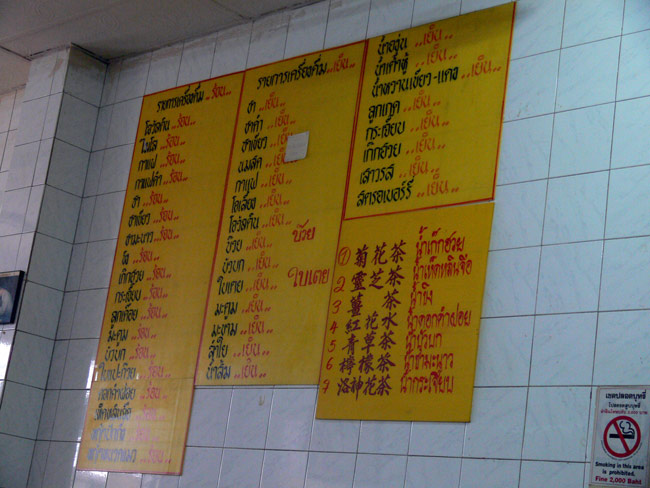 รายการเครื่องดื่ม..ร้อน..
โอวัลติน..ร้อน..
ไมโล ..ร้อน..
กาแฟ ..ร้อน..
กาแฟดำ ..ร้อน..
ชา ..ร้อน..
ชาเขียว ..ร้อน..
ชามะนาว ..ร้อน..
เก๊กฮวย ..ร้อน..
กระเจี๊ยบ ..ร้อน..
มะตูม ..ร้อน..
บัวบก ..ร้อน..
ใบเตย ..ร้อน..
ดอกคำฝอย ..ร้อน..
รายการเครื่องดื่ม..เย็น..
ชา ..เย็น..
ชาดำ ..เย็น..
ชาเขียว ..เย็น..
นมสด ..เย็น..
กาแฟ ..เย็น..
โอเลี้ยง ..เย็น..
โอวัลติน ..เย็น..
บ๊วย ..เย็น.. บ๊วย
บัวบก ..เย็น..
ใบเตย ..เย็น.. ใบเตย
มะตูม ..เย็น..
มะขาม ..เย็น..
ลำใย ..เย็น..
น้ำส้ม ..เย็น..
น้ำองุ่น ..เย็น..
น้ำเก๊าฮู้ ..เย็น..
น้ำหวานเขียว-แดง ..เย็น..
ลูกเกด ..เย็น..
กระเจี๊ยบ ..เย็น..
เก๊กฮวย ..เย็น..
เสาวรส ..เย็น..
สตรอเบอร์รี่ ..เย็น..
① 菊花茶 น้ำเก๊กฮวย
2 靈芝茶 น้ำเห็ดหลินจือ
3 薑茶 น้ำขิง
4 紅花水 น้ำดอกคำฝอย
5 青草茶 น้ำบัวบก
6 檸檬茶 น้ำชามะนาว
7 洛神花茶 น้ำกระเจี๊ยบ
เขตปลอดบุหรี่
Smoking in this area
is prohibited.
Fine 2,000 Baht